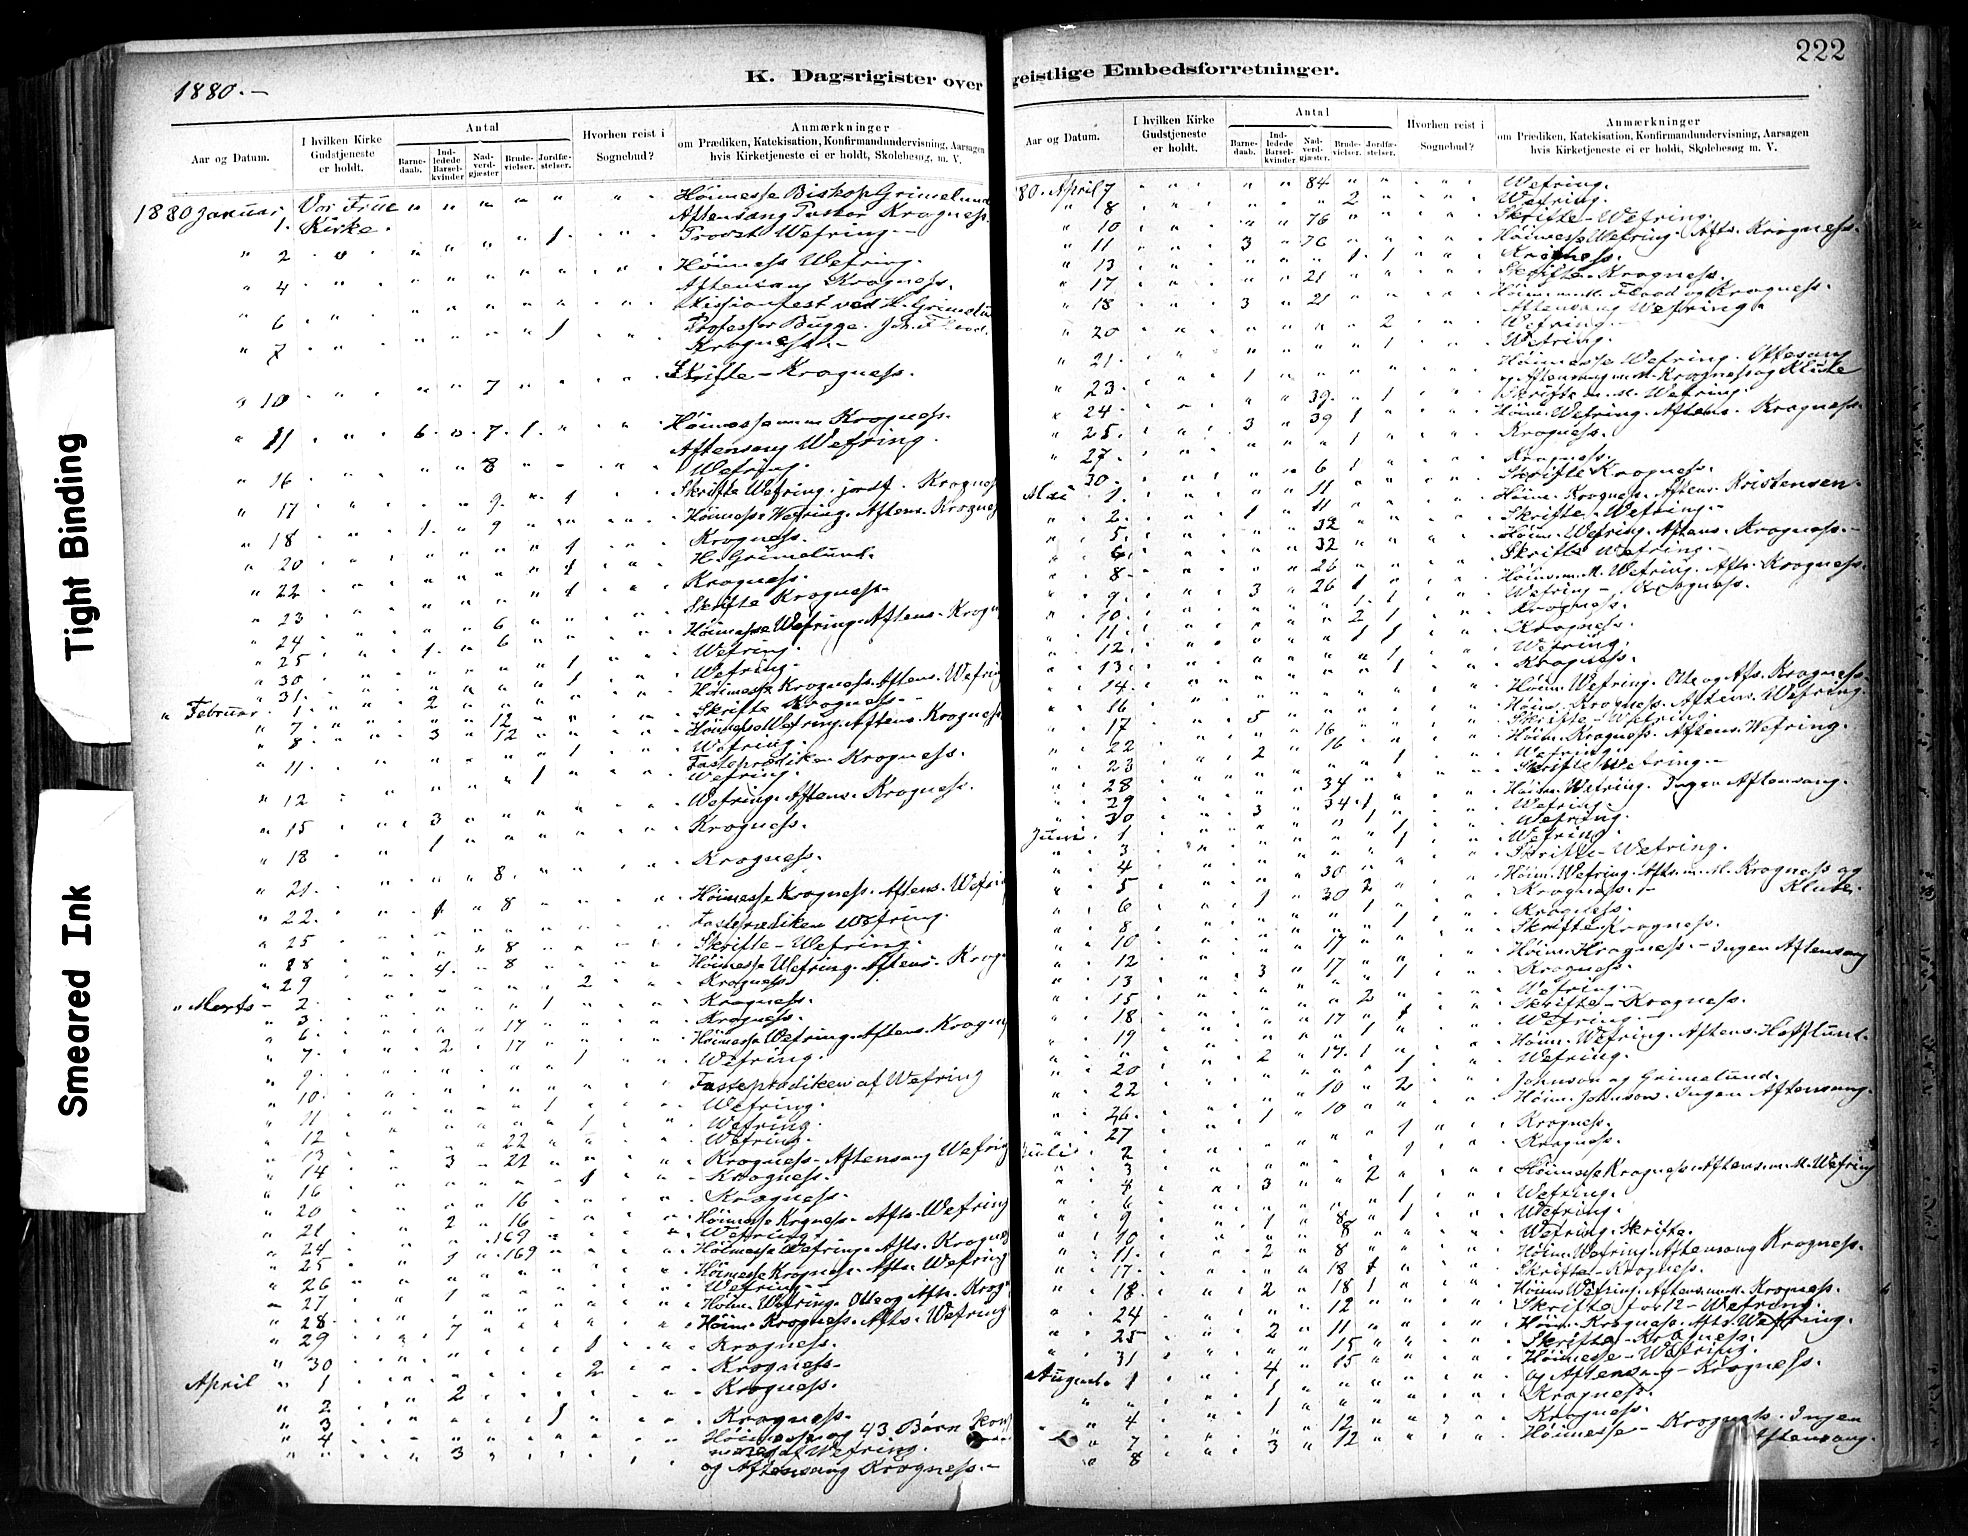 222
K. Dagsrigister over geistlige Embedsforretninger.
1880.-
Aar og Datum.
I hvilken Kirke Gudstjeneste er holdt.
Antal
Barne-daab.
Ind-ledede Barsel-kvinder
Nad-verd-gjæster
Brude-vielser.
Jordfæ-stelser.
Hvorhen reist i Sognebud?
Anmærkninger
om Prædiken, Katekisation, Konfirmandundervisning, Aarsagen
hvis Kirketjeneste ei er holdt, Skolebesøg, m. V.
1880 Januar 1. Vor Frue Kirke. Höimesse Biskop Grimelund
Aftensang Pastor Krogness.
" 2 1. Provst Wefring.-
" 4 Höimess Wefring.
Aftensang Krogness.
" 6 Missionsfest ved H. Grimelund
" 7 1 Professor Bugge.
Krogness.-
" 10 7 Skrifte-Krogness.
" 11 6. 7. 1. Höimesse Krogness.
Aftensang Wefring.
" 16 8 Wefring.
" 17 9. 1 Skrifte Wefring. jordf. Krogness
" 18 1. 9 Höimesse Wefring. Aftens. Krogness
" 20 1 Krogness.
" 22 1 H. Grimelund.
" 23 1 Krogness.
" 24 6 Skrifte Krogness-
" 25 1. 6 Höimesse Wefring. Aftens. Krogn
" 30 1 Wefring.
" 31. 1 Wefring.
" Februar. 1. 2 Höimesse Krogness. Aftens. Wefring
" 7 12 Skrifte Krogness-
" 8 3 12 Höimesse Wefring. Aftens. Krogness
" 11. 1 Wefring.
Fasteprædiken Krogness.
" 12 1 Wefring.
" 15 3 Wefring. Aftens. Krogness.
" 18 1 Krogness.
" 21. 8. Krogness.
" 22. 1 8 Höimesse Krogness. Aftens. Wefri
" 25 Fasteprædiken Wefring.
" 28 8 Skrifte-Wefring.
" 29 4. 8 Höimesse Wefring. Aftens. Krog
" Marts - 2. 2 Krogness
" 3. 1 Krogness.
" 6. 17 Krogness.
" 7. 2 17 Höimesse Wefring. Aftens. Krogn
" 9. 1 Wefring.
" 10. Fasteprædiken af Wefring
" 11 1 Wefring.
" 12 1 Wefring.
" 13 22 Wefring.
" 14 3 22 Krogness-Aftensang Wefring
" 16 1 Krogness.
" 20 16 Krogness.
" 21 2 16 Höimesse Krogness- Afts. Wefring
" 24 169 Wefring.
" 25 1 169 Höimesse Wefring. Afts. Krogness
" 26 Höimesse Krogness. Afts. Wefring
" 27 1 Wefring
" 28 Höim. Wefring. Otte og Afts. Krog
" 29 7 Höim. Krogness. Afts. Wefring
" 30 1 Krogness.
April " 1 2 Krogness-
" 2 2 Krogness.
" 3 1 Krogness.
" 4 3 Höimesse og 43 Børn
af Wefring.
og Aftensang Krogness.-
Aar og Datum.
I hvilken Kirke Gudstjeneste er holdt.
Antal
Barne-daab.
Ind-ledede Barsel-kvinder
Nad-verd-gjæster.
Brude-vielser.
Jordfæ-stelser.
Hvorhen reist i Sognebud?
Anmærkninger
om Prædiken, Katekisation, Konfirmandundervisning, Aarsagen
hvis Kirketjeneste ei er holdt, Skolebesøg m. V.
80. April 7 84 Wefring.
" 8 2 Wefring.
" 10 76 Skrifte-Wefring.
" 11 3 76 Höimesse Wefring. Afts. Krogness.
" 13 1. 1 Krogness.
" 17 21 Skrifte-Krogness.
" 18 3 21 Höim. m. M. Flood og Krogness.
Aftensang Wefring.
" 20 2 Wefring.-
" 21. 1 Wefring.
" 23. 1 Höimesse Wefring. Ottesang
og Aftensang m. M. Krogness og Klute
" 24 39. 1 Skrifte m. M. Wefring.
" 25. 3 39 1 Höim. Wefring. Aftens. Krogness.
" 27. 1 Krogness.
" 30. 6 1 Krogness.
Mai 1. 11 Skrifte Krogness.
" 2. 1 11 Höim. Krogness. Aftens. Kristensen.
" 5. 32 Skrifte-Wefring.-
" 6. 32 Höim. Wefring. Aftens. Krogness.-
" 8- 26 Skrifte Wefring.-
" 9. 3 26 1 Höim. m. M. Wefring. Afts. Krogness.
" 10. 1. 1 Wefring- Krogness.
" 11. 2 1 Krogness.
" 12. 1 1 Krogness.
" 13. 1 Wefring.
" 14. 1 Krogness.
" 16 Höim. Wefring. Otte og Afs. Krogness.
" 17 5 Höim. Krogness. Aftens. Wefring.
" 22 16 Skrifte-Wefring.
" 23 2 16 Höim. Krogness. Aftens. Wefring.
" 28 1 Wefring.
" 29 34 Skrifte Wefring.-
" 30 3 34 1 Höim. Wefring. Ingen Aftensang.
Juni. 1 1 Wefring.
" 3 1 Wefring.
" 4 1 Wefring.
" 5 30 Skrifte-Wefring.
" 6 1 30 2 Höim. Wefring. Afts. m. M. Krogness og Klute.
" 8 1 Krogness.-
" 10 1 Krogness.
" 12 17 Skrifte Krogness.
" 13 3 17 1 Höim. Krogness.- Ingen Aftensang
" 15 Krogness.
" 18 2 Wefring.-
" 19 17 1 Skrifte-Krogness.
Wefring.-
" 20 2 17. 1 Höim. Wefring. Aftens. Hofflund.
" 22 1 Wefring.
" 26. 10 2 Johnson og Grimelund.
" 27 1 10 Höim. Johnson. Ingen Aftensang.
Juli 2 1 Krogness.
" 3 1 Krogness.
" 4 3 2 Höimesse Krogness. Aftens. m. M. Wefring
" 6 1 Wefring.
" 9 1 1 Wefring.
" 10 8 Wefring. Skrifte.
" 11. 2 8 Höim. Wefring. Aftensang Krogness.
" 17. 18 1 Skrifte-Krogness.
" 18. 2 18 1 Höim. Wefring. Aftens. m. M. Krogness.
" 24 12 Skrifte for 12-Wefring.
" 25 2 11 Höim. Krogness. Afts. Wefring.
" 31 15 Skrifte-Krogness.
August. 1 4 15 Höimesse-Wefring.
og Aftensang-Krogness.
" 4 1 Krogness.
" 7 12 Krogness.
" 8 3 12 Höimesse-Krogness. Ingen Aftensang.
Tight Binding
Smeared Ink